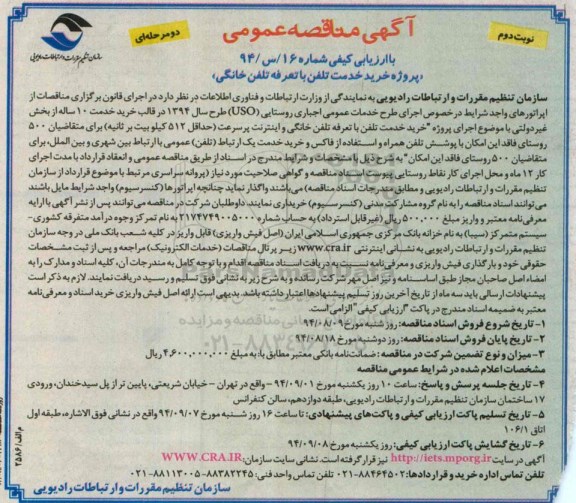 نوبت دوم
آگهی مناقصه عمومی
دو مرحله‌ای
با ارزیابی کیفی شماره ۱۶/س/۹۴
«پروژه خرید خدمت تلفن با تعرفه تلفن خانگی»
سازمان تنظیم مقررات و ارتباطات رادیویی
سازمان تنظیم مقررات و ارتباطات رادیویی به نمایندگی از وزارت ارتباطات و فناوری اطلاعات در نظر دارد در اجرای قانون برگزاری مناقصات از
اپراتورهای واجد شرایط در خصوص اجرای طرح خدمات عمومی اجباری روستایی (USO) طرح سال ۱۳۹۴ در قالب خرید خدمت ۱۰ ساله از بخش
غیردولتی با موضوع اجرای پروژه "خرید خدمت تلفن با تعرفه تلفن خانگی و اینترنت پرسرعت (حداقل ۵۱۲ کیلو بیت بر ثانیه) برای متقاضیان ۵۰۰
روستای فاقد این امکان با پوشش تلفن همراه و استفاده از فاکس و خرید خدمت یک ارتباط (تلفن) عمومی با ارتباط بین شهری و بین الملل، برای
متقاضیان ۵۰۰ روستای فاقد این امکان" به شرح ذیل با مشخصات و شرایط مندرج در اسناد از طریق مناقصه عمومی و انعقاد قرارداد با مدت اجرای
کار ۱۲ ماه و محل اجرای کار نقاط روستایی پیوست اسناد مناقصه و گواهی صلاحیت مورد نیاز (پروانه سراسری مرتبط با موضوع قرارداد از سازمان
تنظیم مقررات و ارتباطات رادیویی و مطابق مندرجات اسناد مناقصه) می‌باشند واگذار نماید چنانچه اپراتورها (کنسرسیوم) واجد شرایط مایل باشند
می‌توانند اسناد مناقصه را به نام گروه مشارکت مدنی (کنسرسیوم) خریداری نمایند. داوطلبان شرکت در مناقصه می‌توانند پس از نشر آگهی با ارایه
معرفی‌نامه معتبر و واریز مبلغ ۵۰۰,۰۰۰ ریال (غیر قابل استرداد) به حساب شماره ۲۱۷۴۷۴۹۰۰۵۰۰۰ به نام تمرکز وجوه درآمد متفرقه کشوری-
سیستم متمرکز (سیبا) به نام خزانه بانک مرکزی جمهوری اسلامی ایران (اصل فیش واریزی) قابل واریز در کلیه شعب بانک ملی در وجه سازمان
تنظیم مقررات و ارتباطات رادیویی به نشانی اینترنتی www.cra.ir زیر پرتال مناقصات (خدمات الکترونیک) مراجعه و پس از ثبت مشخصات
حقوقی خود و بارگذاری فیش واریزی و معرفی‌نامه نسبت به دریافت اسناد مناقصه اقدام و با توجه کامل به مندرجات آن، کلیه اسناد و مدارک را به
امضاء اصل صاحبان مجاز طبق اساسنامه و نیز اصل مهر شرکت رسانده و به شرح زیر به نشانی فوق تسلیم و رسید دریافت نمایند. لازم به ذکر است
پیشنهادات ارسالی باید سه ماه از تاریخ آخرین روز تسلیم پیشنهادها اعتبار داشته باشد. بدیهی است ارائه اصل فیش واریزی خرید اسناد و معرفی‌نامه
معتبر به ضمیمه اسناد مندرج در پاکت "ارزیابی کیفی" الزامی است.
۱- تاریخ شروع فروش اسناد مناقصه: روز شنبه مورخ ۹۴/۰۸/۰۹
۲- تاریخ پایان فروش اسناد مناقصه: روز دوشنبه مورخ ۹۴/۰۸/۱۸
۳- میزان و نوع تضمین شرکت در مناقصه: ضمانت‌نامه بانکی معتبر مطابق با: به مبلغ ۴,۶۰۰,۰۰۰,۰۰۰ ریال
مشخصات اعلام شده در شرایط عمومی مناقصه
۴- تاریخ جلسه پرسش و پاسخ: ساعت ۱۰ روز یکشنبه مورخ ۹۴/۰۹/۰۱ واقع در تهران - خیابان شریعتی، پایین تر از پل سیدخندان، ورودی
۱۷ ساختمان سازمان تنظیم مقررات و ارتباطات رادیویی، طبقه دوازدهم، سالن کنفرانس
۵- تاریخ تسلیم پاکت ارزیابی کیفی و پاکت‌های پیشنهادی: تا ساعت ۱۶ روز شنبه مورخ ۹۴/۰۹/۰۷ واقع در نشانی فوق الاشاره، طبقه اول
اتاق ۱۰۶/۱
۶- تاریخ گشایش پاکت ارزیابی کیفی: روز یکشنبه مورخ ۹۴/۰۹/۰۸
آگهی در سایت http://iets.mporg.ir نیز قرار گرفته است. نشانی سایت سازمان: WWW.CRA.IR
تلفن تماس اداره خرید و قراردادها: ۸۸۴۶۴۵۰۲-۰۲۱ تلفن تماس واحد فنی: ۸۸۳۸۲۲۴۵-۸۸۱۱۳۰۰۵-۰۲۱
سازمان تنظیم مقررات و ارتباطات رادیویی
م الف/۲۵۸۶